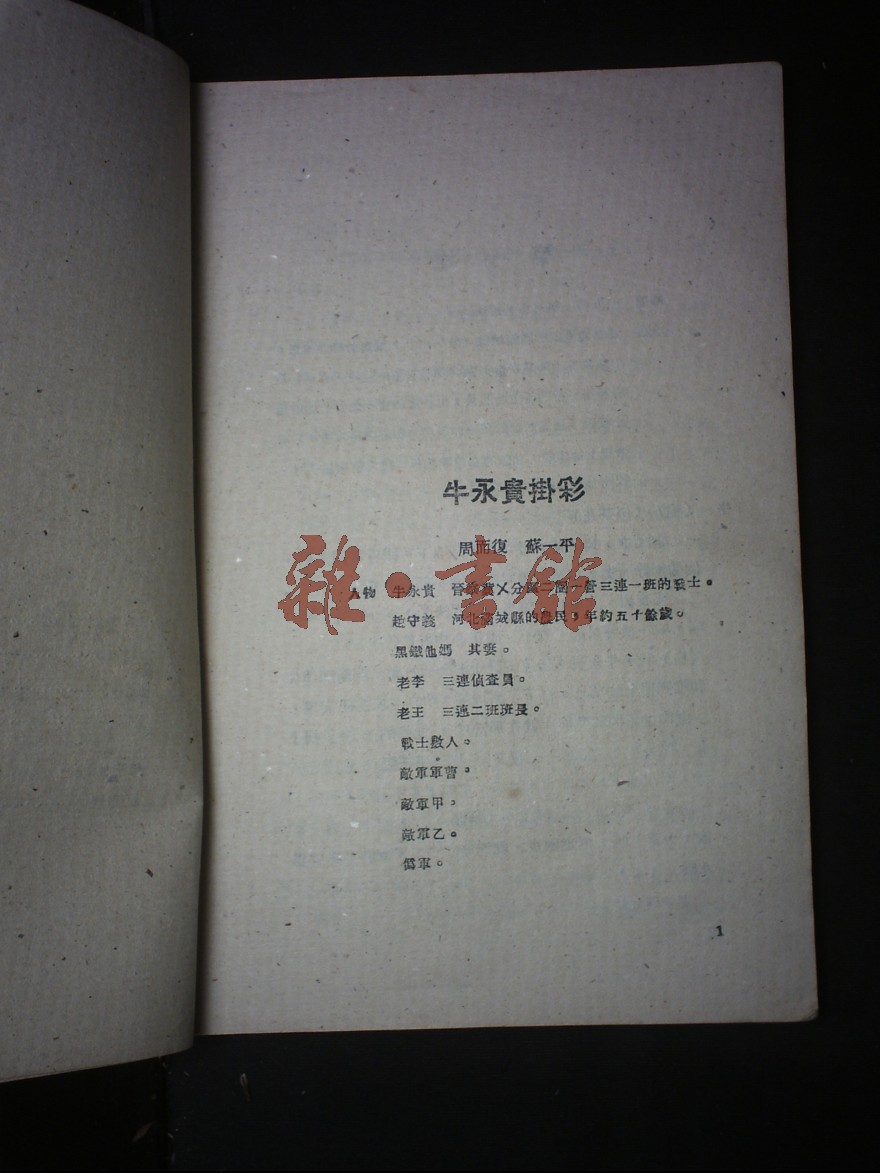 牛永貴掛彩
周而復 蘇一平
人物 牛永貴 晉冀 X分區二團一營三連一班的戰士。
趙守義 河北 城縣的農民,年約五十餘歲。
黑鐵他媽 其妻。
老李 三連偵查員。
老王 三連二班班長。
戰士數人。
敵軍軍曹。
敵軍甲。
敵軍乙。
僞軍。
1
雜·書館